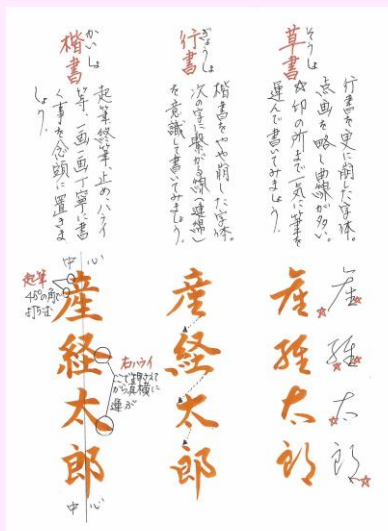 そうしょ
草書
行書を更に崩した字体。
点画を略し曲線が多い。
☆印の所まで一気に筆を
運んで書いてみましょう。
ぎょうしょ
行書
楷書をやや崩した字体。
次の字に繋がる線(連綿)
を意識して書いてみましょう。
かいしょ
楷書
起筆、終筆、止め、ハライ
等、一画一画丁寧に書
く事を念頭に置きま
しょう。
産経太郎
産経太郎
産経太郎
中心
産経太郎
中心
起筆
45°の角で
打ち込む
右ハライ
ここで押さえて
から真横に
運ぶ